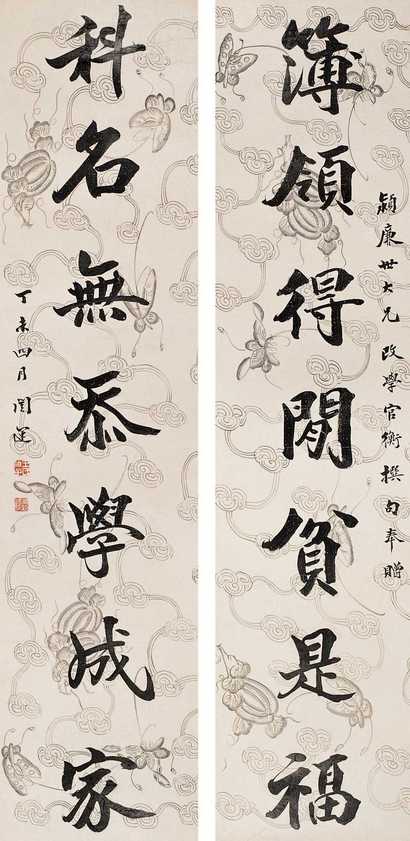 簿領得閒貧是福
穎廉世大兄改學官銜撰句奉贈
科名無忝學成家
丁未四月闓運